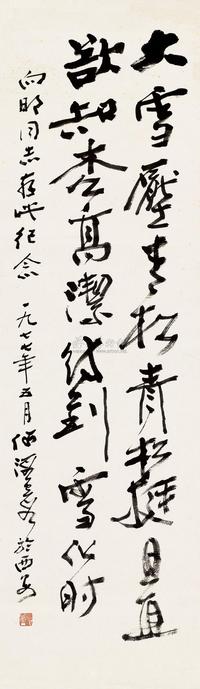 大雪壓青松青松挺且直
欲知松高潔待到雪化时
向明同志存此纪念 一九七七年五月何海霞於西安